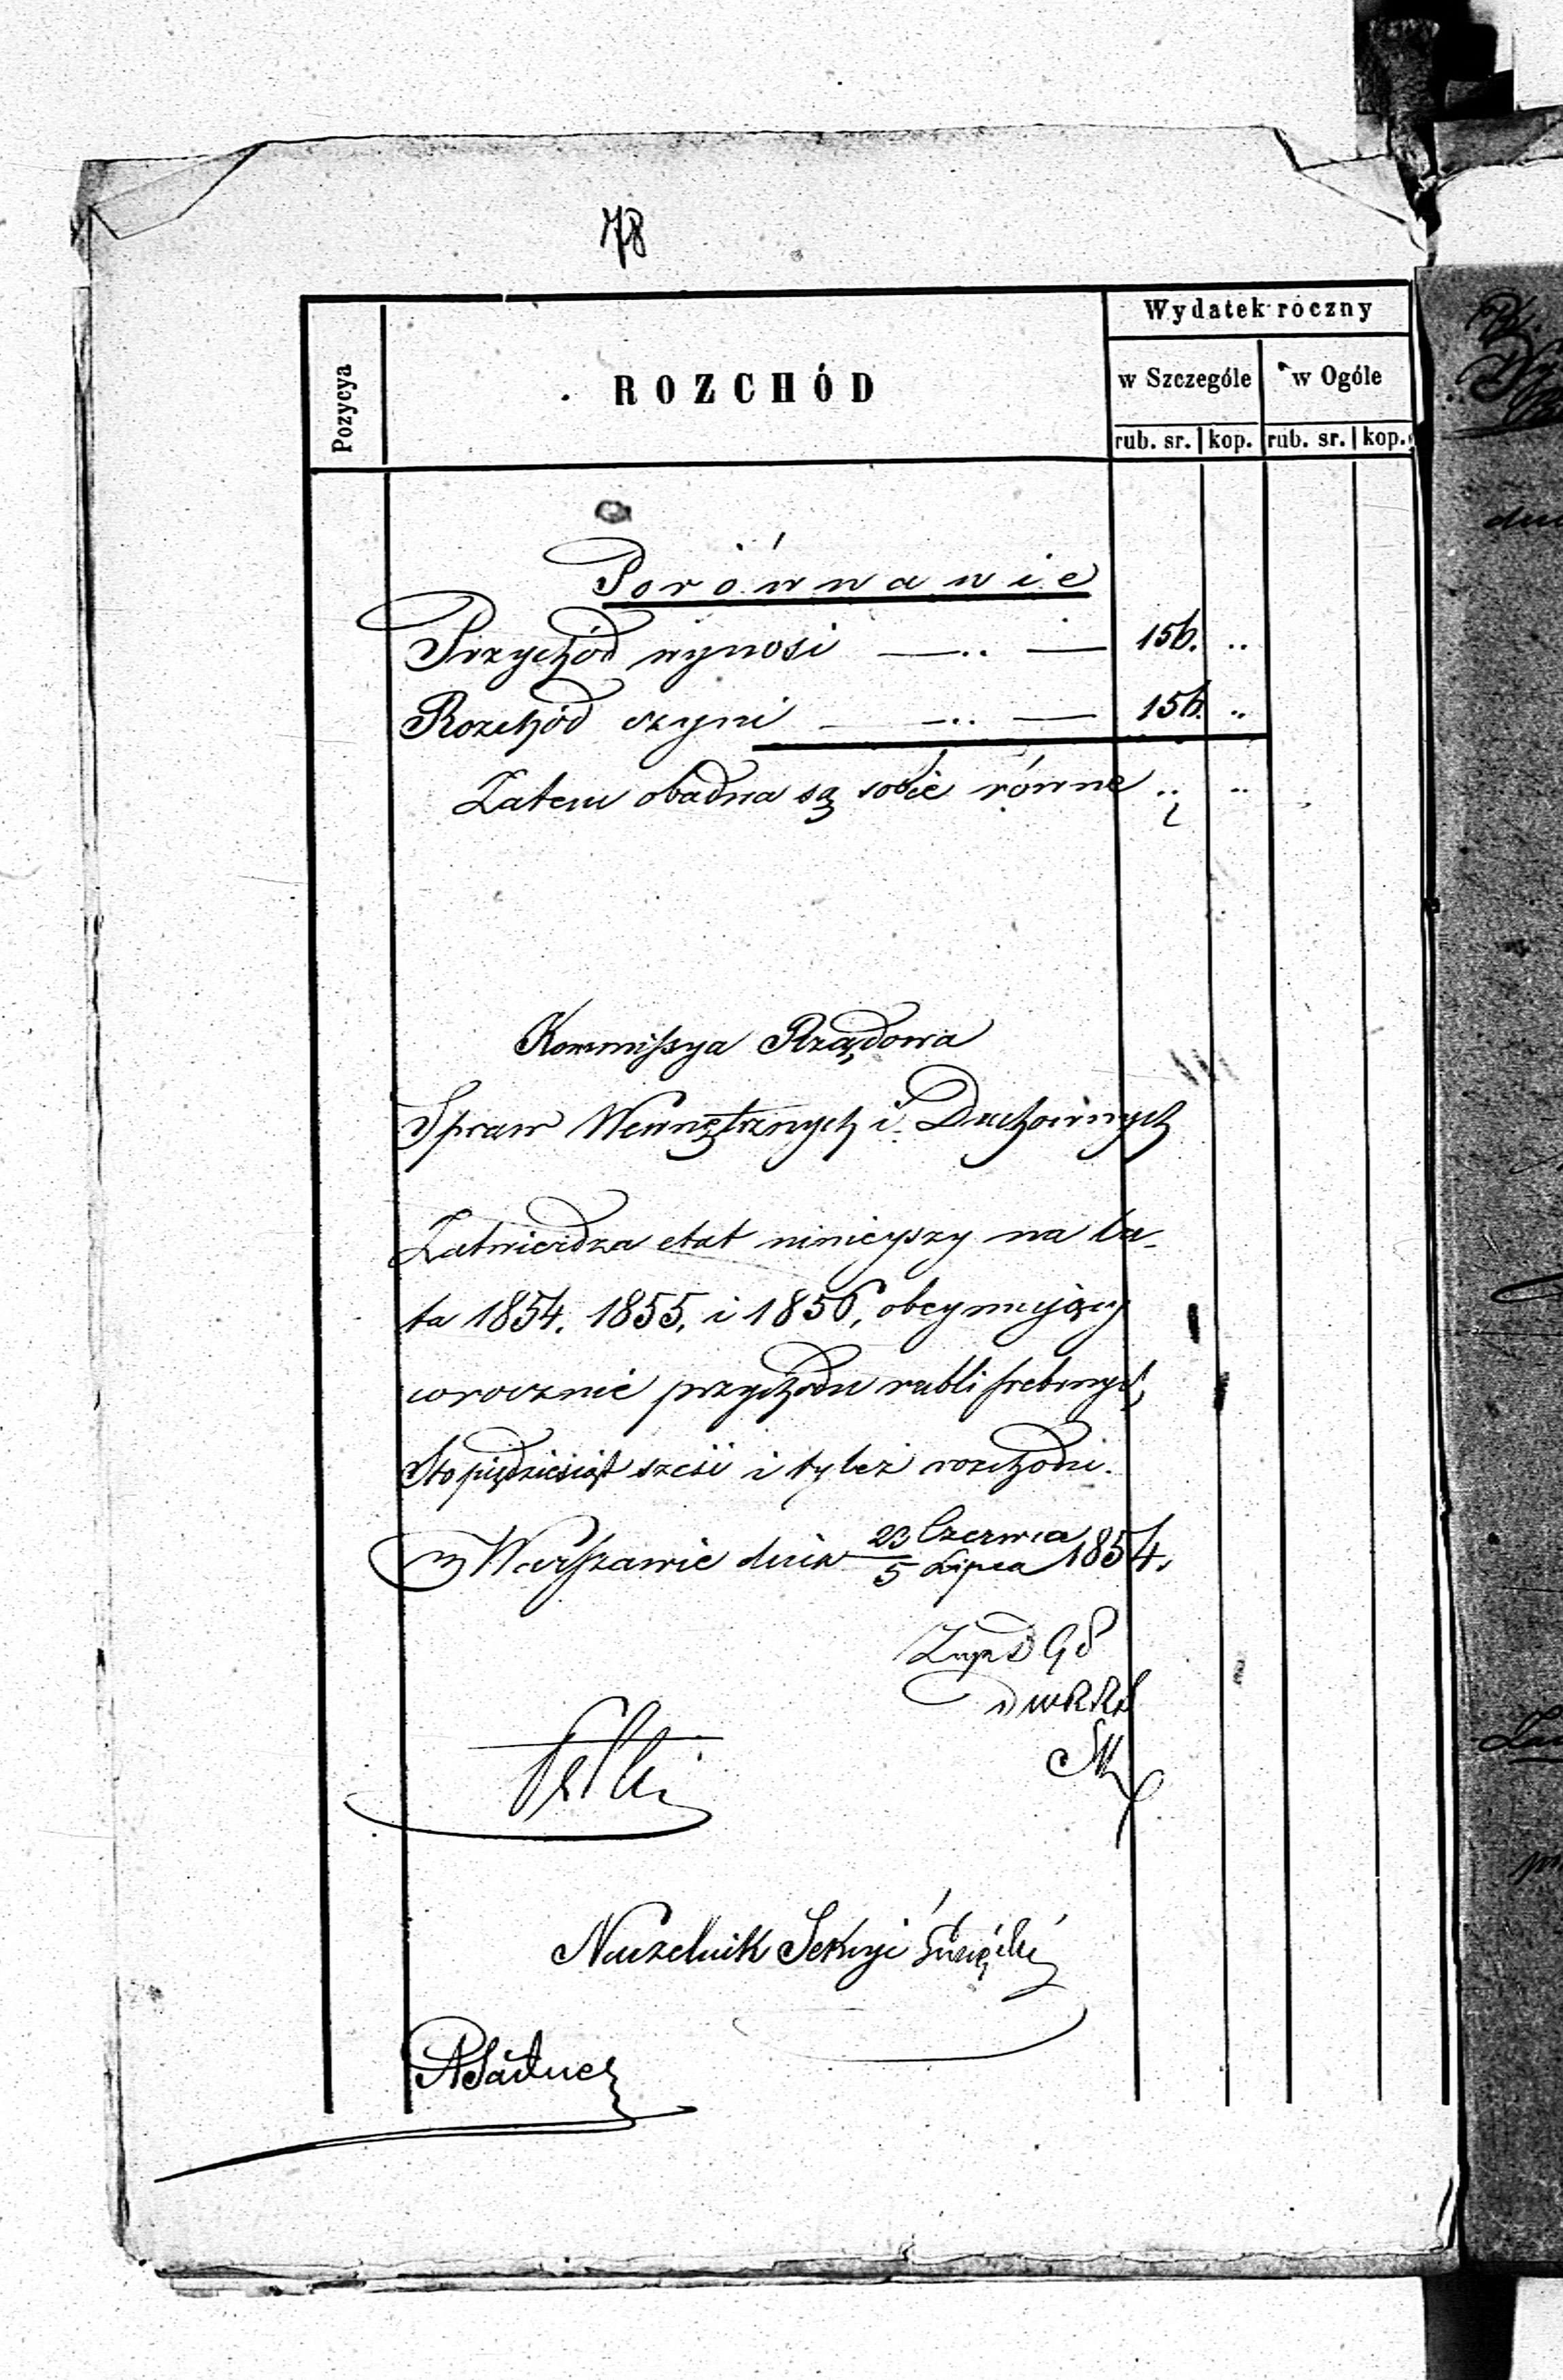 78
Pozycya
ROZCHÓD
Wydatek roczny
w Szczególe
w Ogóle
rub. sr. kop. rub. sr. kop.
Porównanie
Przychód wynosi — .. — 156. ..
Rozchód czyni — .. — 156. ..
Zatem obadwa są sobie równe .. ..
Kommissya Rządowa
Spraw Wewnętrznych i Duchownych
Zatwierdza etat niniejszy na la-
ta 1854. 1855. i 1856, obejmujący
corocznie przychodu rubli srebrnych,
Sto pięćdziesiąt sześć i tyleż rozchodu.
w Warszawie dnia 23 Czerwca / 5 Lipca 1854.
Naczelnik Sekcyi